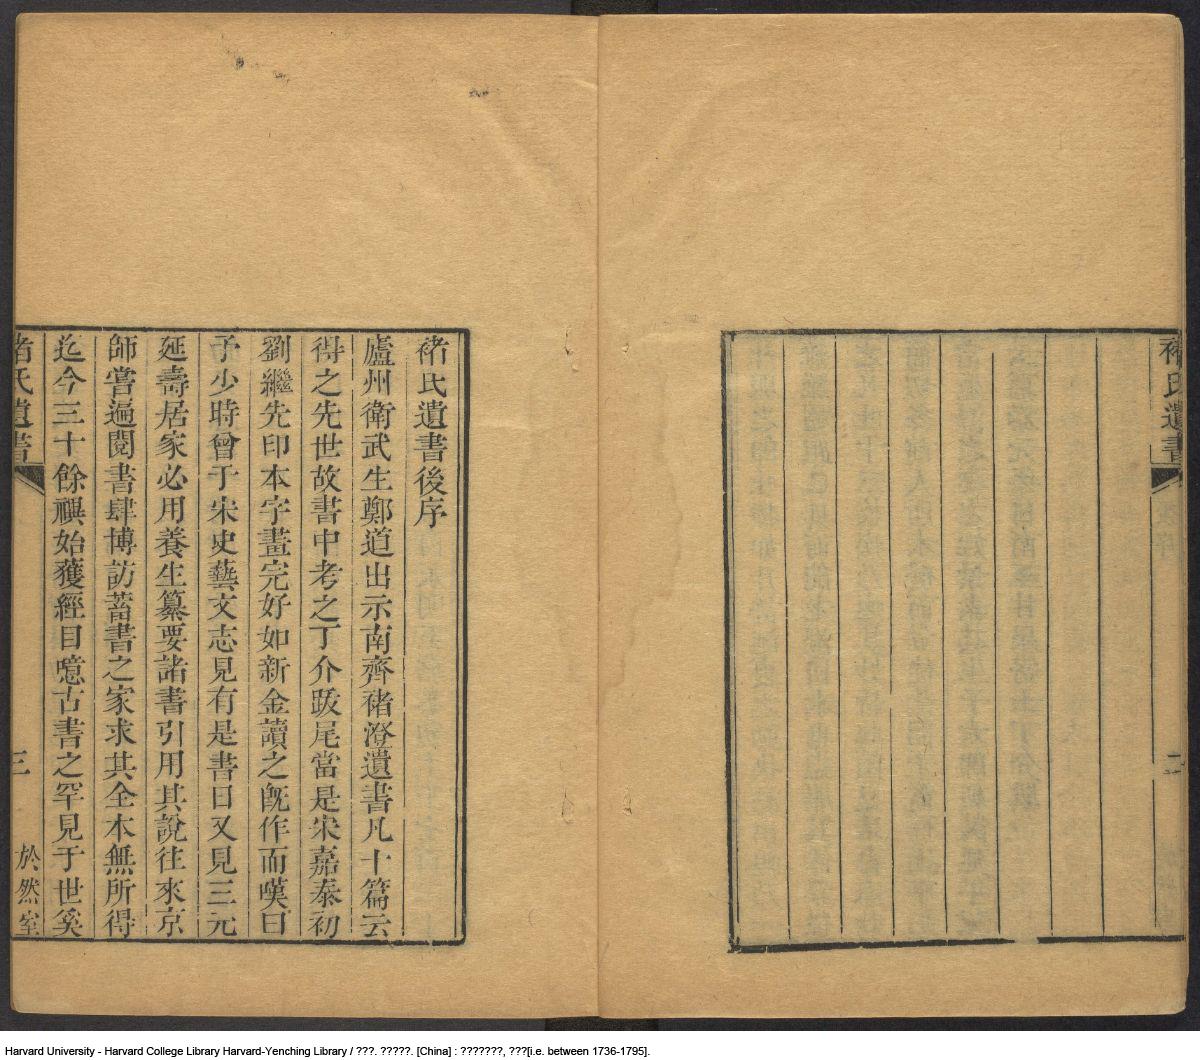 褚氏遺書
二
褚氏遺書後序
廬州衛武生鄭道出示南齊褚澄遺書凡十篇云
得之先世故書中考之丁介跋尾當是宋嘉泰初
劉繼先印本字畫完好如新金讀之旣作而嘆曰
予少時曾于宋史藝文志見有是書目又見三元
延壽居家必用養生纂要諸書引用其說往來京
師嘗遍閱書肆博訪蓄書之家求其全本無所得
迄今三十餘禩始獲經目噫古書之罕見于世奚
褚氏遺書
三
於然室
Harvard University - Harvard College Library Harvard-Yenching Library / ???. ?????. [China] : ???????, ???[i.e. between 1736-1795].